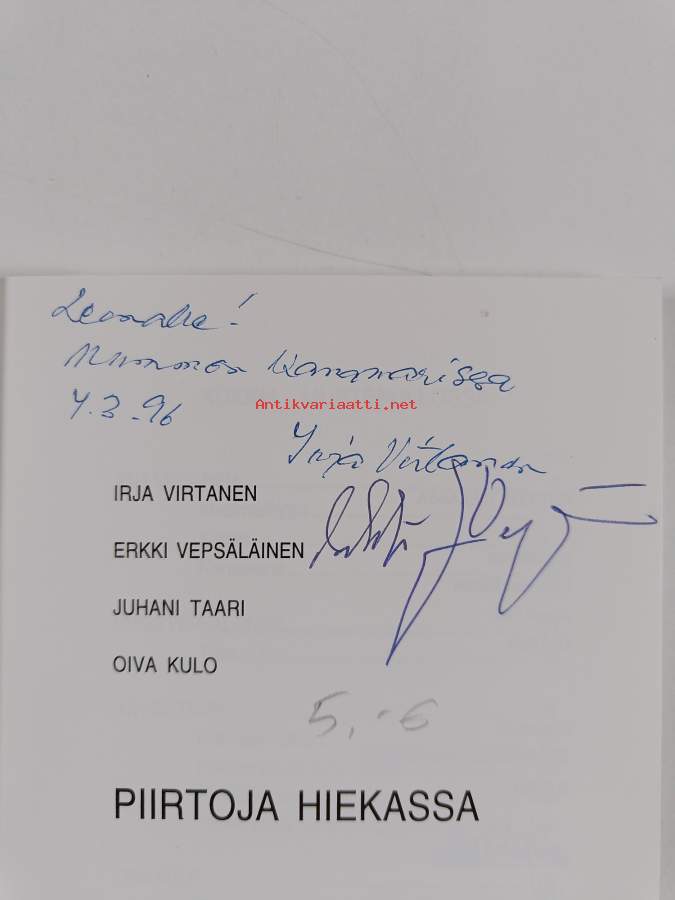 Leenalle!
Mummon Kammarissa
7.3.-96
Antikvariaatti.net
Irja Virtanen
IRJA VIRTANEN
ERKKI VEPSÄLÄINEN
JUHANI TAARI
OIVA KULO
5,-€
PIIRTOJA HIEKASSA